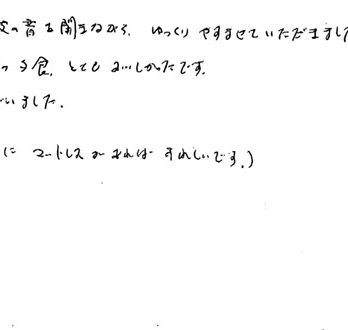 の音を聞きながら、ゆっくりやすませていただきました
つ夕食、とてもおいしかったです。
いました。
に マットレスがあれば うれしいです。)